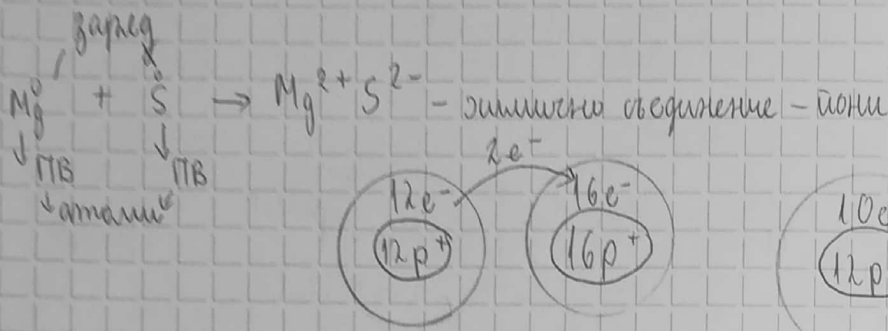 заряд
Mg⁰ + S⁰ → Mg²⁺ S²⁻ - химично съединение - йони
ПВ ПВ
атоми
2e⁻
12e⁻ 16e⁻ 10e
12p⁺ 16p⁺ 12p